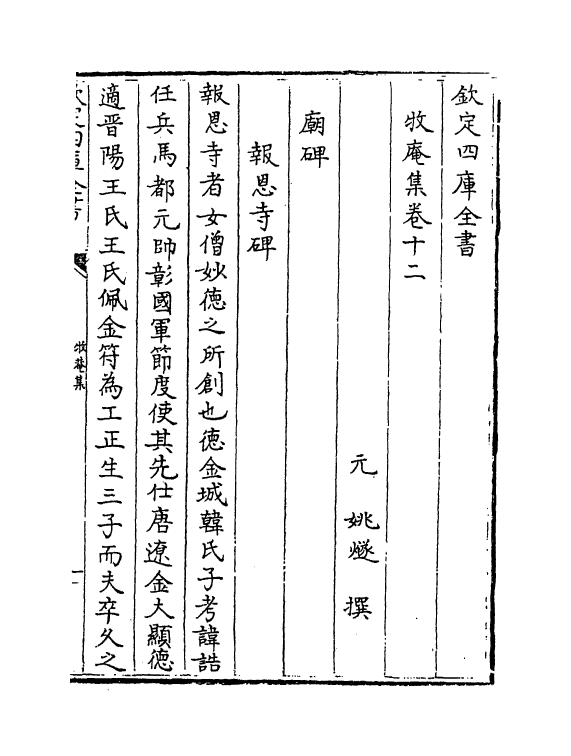 欽定四庫全書
牧庵集卷十二
元 姚燧 撰
廟碑
報恩寺碑
報恩寺者女僧妙德之所創也德金城韓氏子考諱誥
任兵馬都元帥彰國軍節度使其先仕唐遼金大顯德
適晉陽王氏王氏佩金符為工正生三子而夫卒久之
欽定四庫全書
牧庵集
一